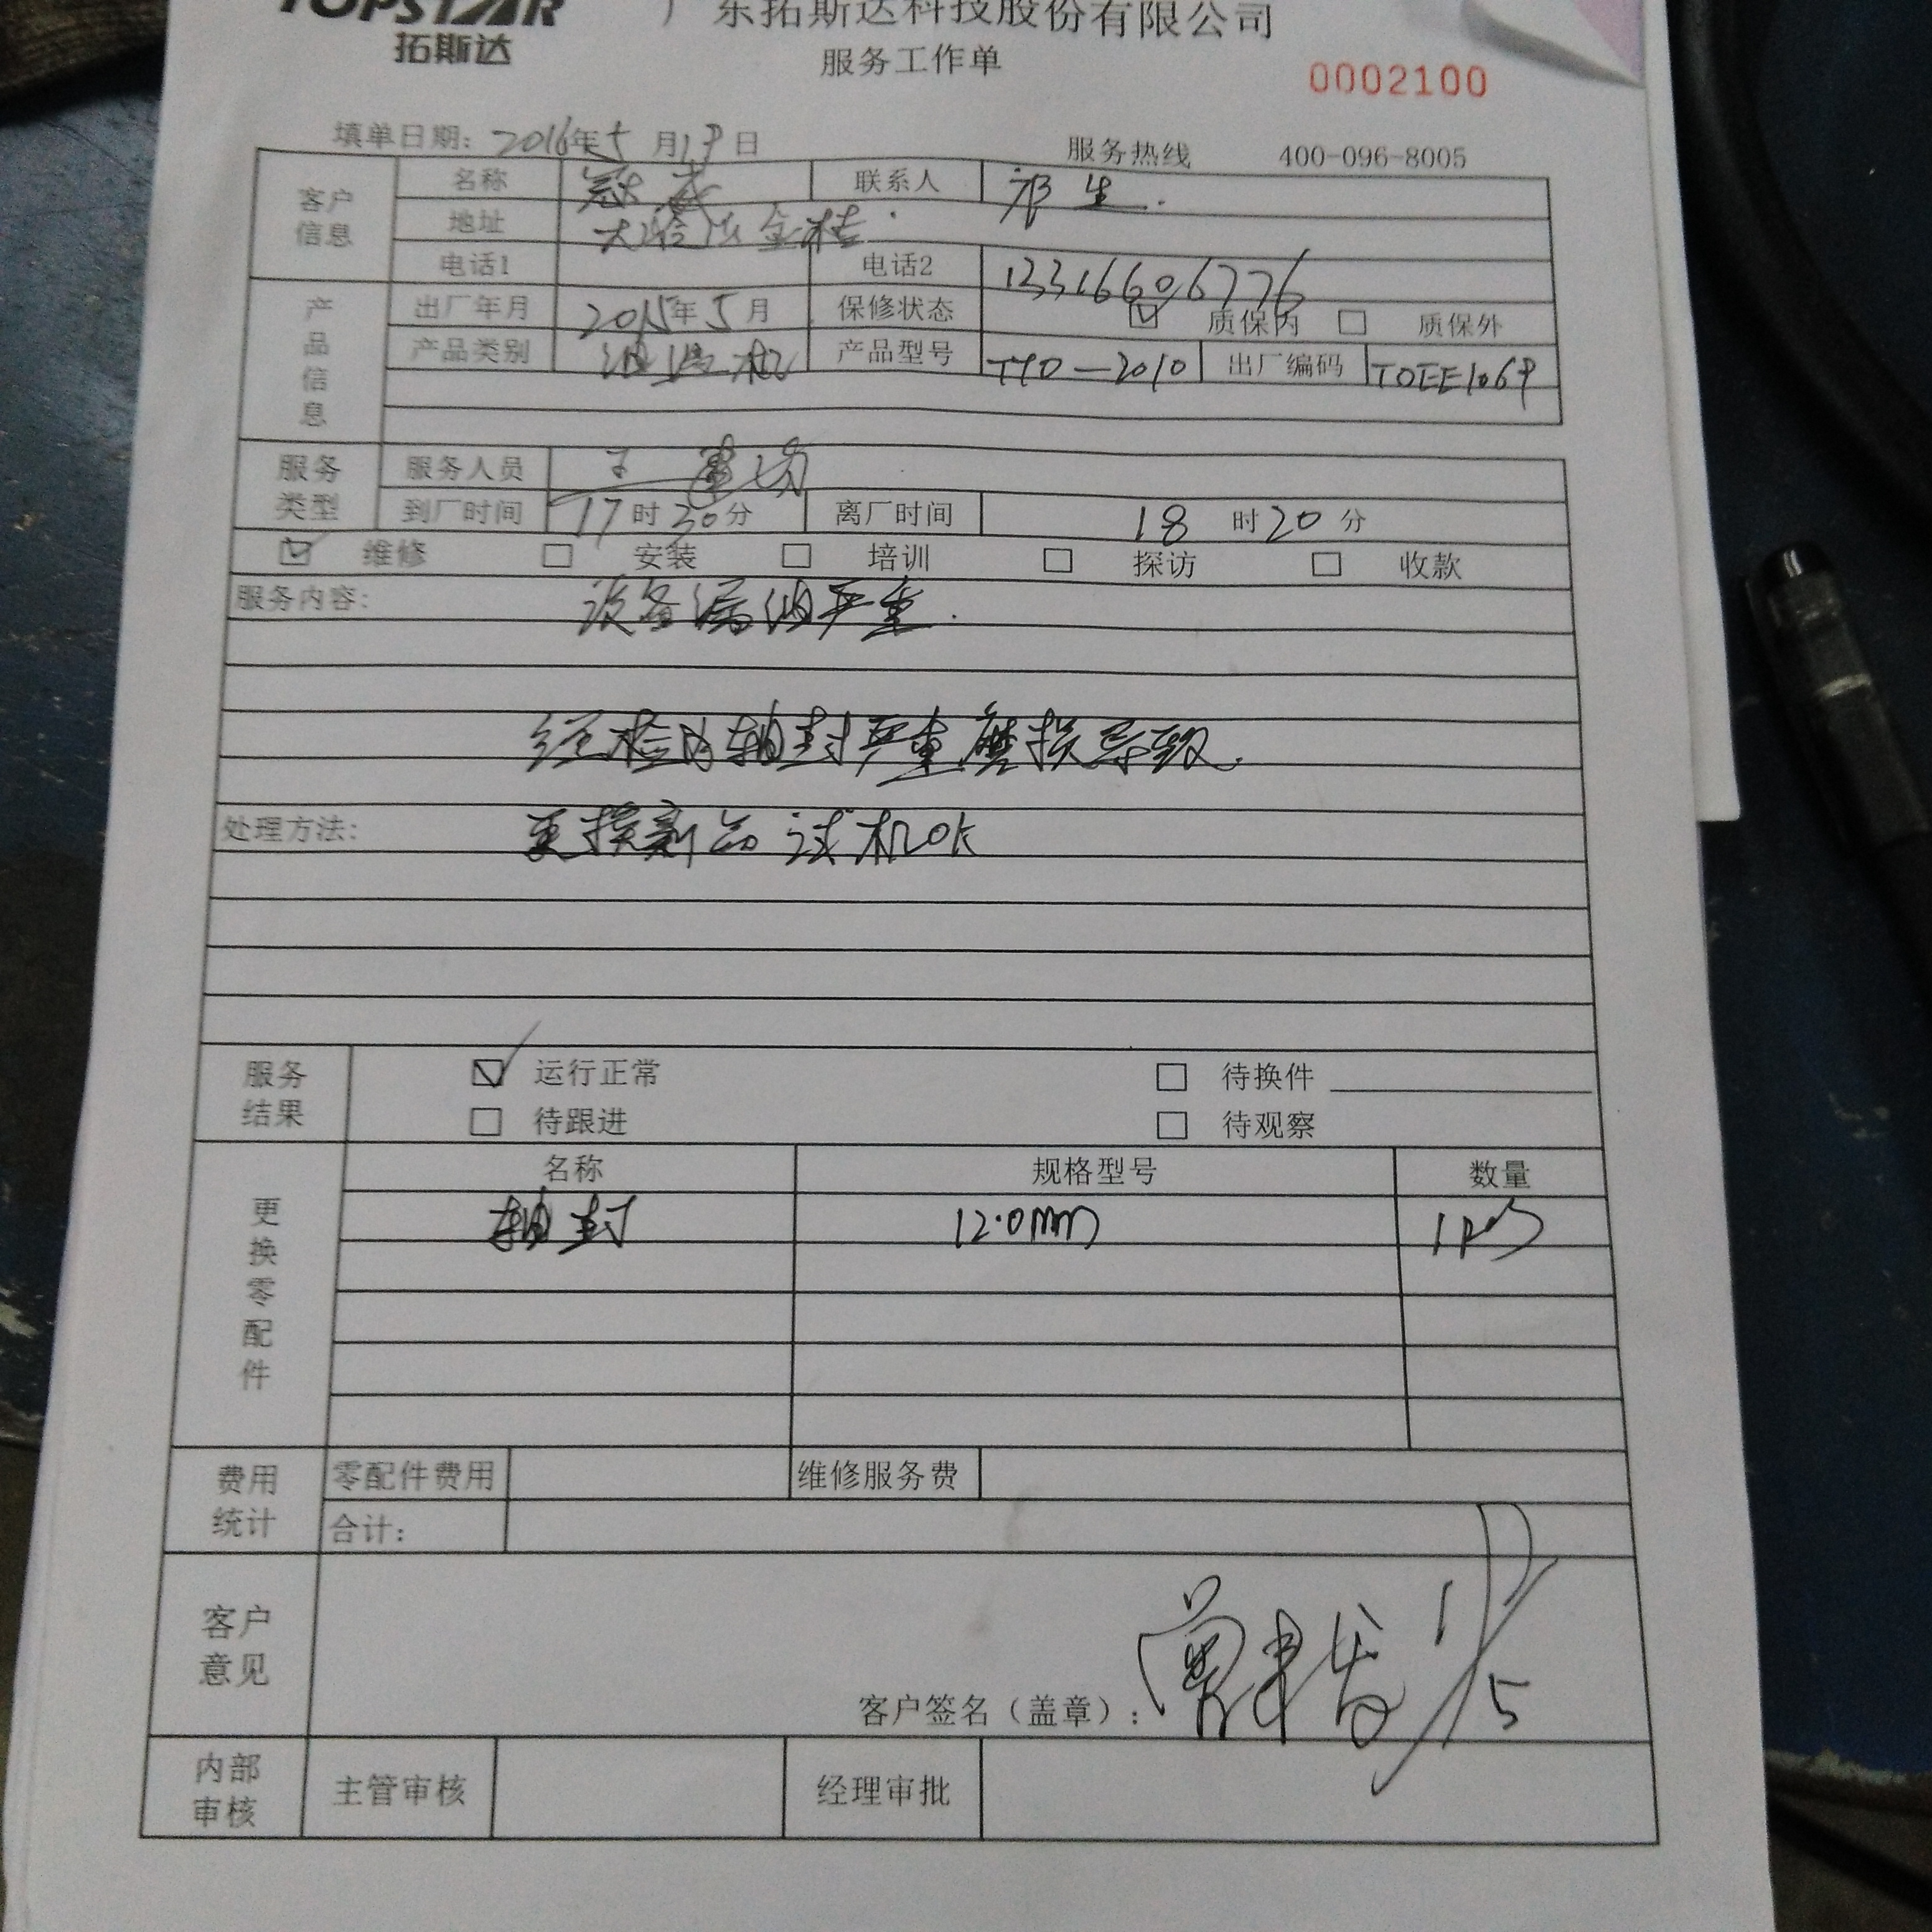 TOPSTAR
拓斯达
广东拓斯达科技股份有限公司
服务工作单
0002100
填单日期: 2016年5月19日
服务热线 400-096-8005
客户信息
名称 联系人 祁生.
地址
电话1 电话2 13316606776
产品信息
出厂年月 2015年5月 保修状态 质保内 质保外
产品类别 油温机 产品型号 出厂编码 TOEE1069
服务类型
服务人员 王
到厂时间 17时30分 离厂时间 18时20分
维修 安装 培训 探访 收款
服务内容: 设备漏油严重.
经检为轴封严重磨损导致.
处理方法: 更换新品 试机OK
服务结果
运行正常 待换件
待跟进 待观察
更换零配件
名称 规格型号 数量
轴封 12.0mm 1PCS
费用统计
零配件费用 维修服务费
合计:
客户意见
客户签名（盖章）:
内部审核
主管审核 经理审批